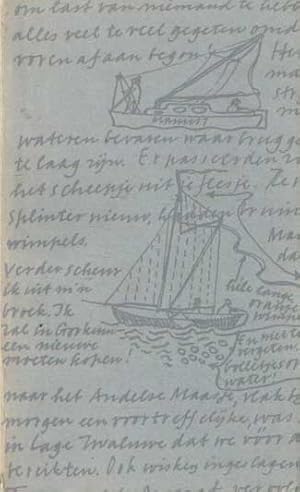 om last van niemand te hebb
alles veel te veel gegeten omd
voren af aan begon
He
ma
str
m
wateren bevaren waar brugge
te laag zijn. Er passeerden
het scheepje uit je flesje. Ze
splinter nieuw,
wimpels.
Maa
da
Verder scheur
ik uit m'n
broek. Ik
zal in Gorkum
een nieuwe
moeten kopen!
hele lange
oranje
wimpel
En niet te
vergeten
bolletjes op
water!
naar het Andelse Maasje, vlak bij
morgen een voortreffelijke, was
in Lage Zwaluwe dat we vóór d
bereikten. Ook wiskey ingeslagen